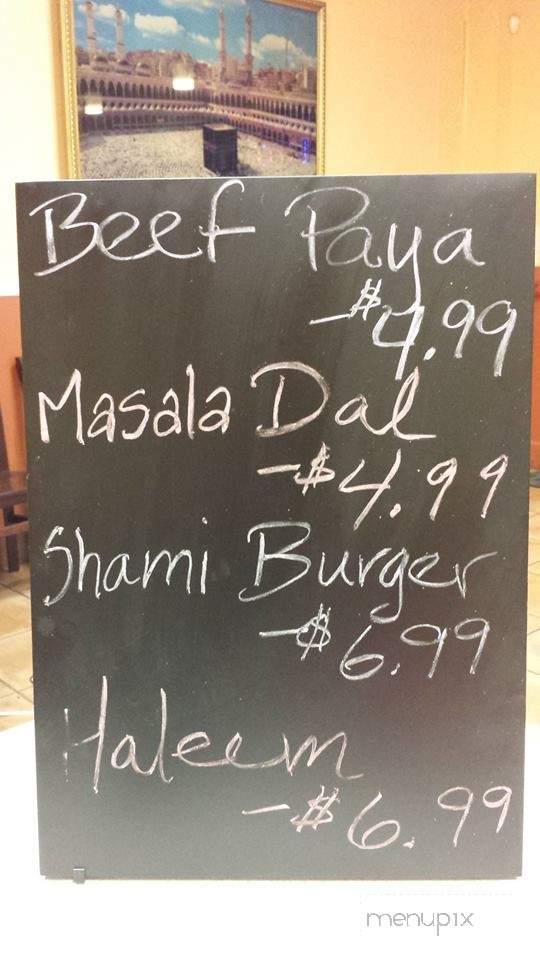 Beef Paya
-$4.99
Masala Dal
-$4.99
Shami Burger
-$6.99
Haleem
-$6.99
menupix